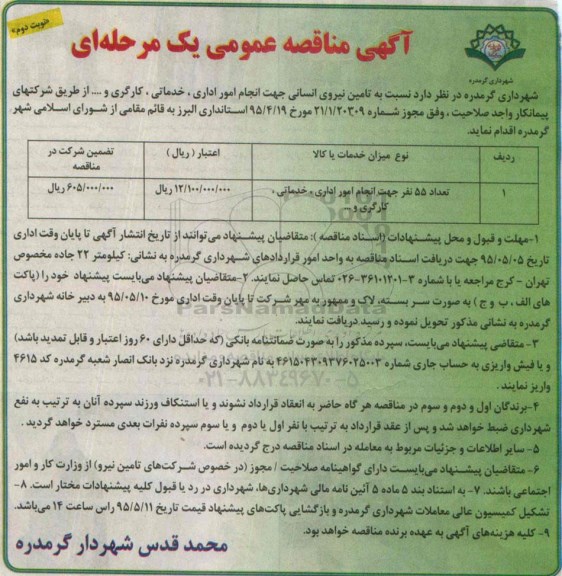 «نوبت دوم»
آگهی مناقصه عمومی یک مرحله‌ای
شهرداری گرمدره
شهرداری گرمدره در نظر دارد نسبت به تامین نیروی انسانی جهت انجام امور اداری ، خدماتی ، کارگری و .... از طریق شرکتهای
پیمانکار واجد صلاحیت ، وفق مجوز شماره ۲۱/۱/۲۰۳۰۹ مورخ ۹۵/۴/۱۹ استانداری البرز به قائم مقامی از شورای اسلامی شهر
گرمدره اقدام نماید.
ردیف
نوع میزان خدمات یا کالا
اعتبار ( ریال )
تضمین شرکت در
مناقصه
۱
تعداد ۵۵ نفر جهت انجام امور اداری ، خدماتی ،
کارگری و ...
۱۲/۱۰۰/۰۰۰/۰۰۰ ریال
۶۰۵/۰۰۰/۰۰۰ ریال
۱-مهلت و قبول و محل پیشنهادات (اسناد مناقصه ): متقاضیان پیشنهاد می‌توانند از تاریخ انتشار آگهی تا پایان وقت اداری
تاریخ ۹۵/۰۵/۰۵ جهت دریافت اسناد مناقصه به واحد امور قراردادهای شهرداری گرمدره به نشانی: کیلومتر ۲۲ جاده مخصوص
تهران - کرج مراجعه یا با شماره ۳-۳۶۱۰۱۲۰۱-۰۲۶ تماس حاصل نمایند. ۲-متقاضیان پیشنهاد می‌بایست پیشنهاد خود را (پاکت
های الف ، ب و ج ) به صورت سر بسته، لاک و ممهور به مهر شرکت تا پایان وقت اداری مورخ ۹۵/۰۵/۱۰ به دبیر خانه شهرداری
گرمدره به نشانی مذکور تحویل نموده و رسید دریافت نمایند.
ParsNamadData
۳- متقاضی پیشنهاد می‌بایست، سپرده مذکور را به صورت ضمانتنامه بانکی (که حداقل دارای ۶۰ روز اعتبار و قابل تمدید باشد)
و یا فیش واریزی به حساب جاری شماره ۴۶۱۵۰۴۳۰۹۳۷۶۰۲۵۰۰۳ به نام شهرداری گرمدره نزد بانک انصار شعبه گرمدره کد ۴۶۱۵
واریز نمایند.
۰۲۱-۸۸۳۴۹۶۷۰-۵
۴-برندگان اول و دوم و سوم در مناقصه هر گاه حاضر به انعقاد قرارداد نشوند و یا استنکاف ورزند سپرده آنان به ترتیب به نفع
شهرداری ضبط خواهد شد و پس از عقد قرارداد به ترتیب با نفر اول یا دوم و یا سوم سپرده نفرات بعدی مسترد خواهد گردید .
۵- سایر اطلاعات و جزئیات مربوط به معامله در اسناد مناقصه درج گردیده است.
۶- متقاضیان پیشنهاد می‌بایست دارای گواهینامه صلاحیت / مجوز (در خصوص شرکت‌های تامین نیرو) از وزارت کار و امور
اجتماعی باشند. ۷- به استناد بند ۵ ماده ۵ آئین نامه مالی شهرداری‌ها، شهرداری در رد یا قبول کلیه پیشنهادات مختار است. ۸-
تشکیل کمیسیون عالی معاملات شهرداری گرمدره و بازگشایی پاکت‌های پیشنهاد قیمت تاریخ ۹۵/۵/۱۱ راس ساعت ۱۴ می‌باشد.
۹- کلیه هزینه‌های آگهی به عهده برنده مناقصه خواهد بود.
محمد قدس شهردار گرمدره